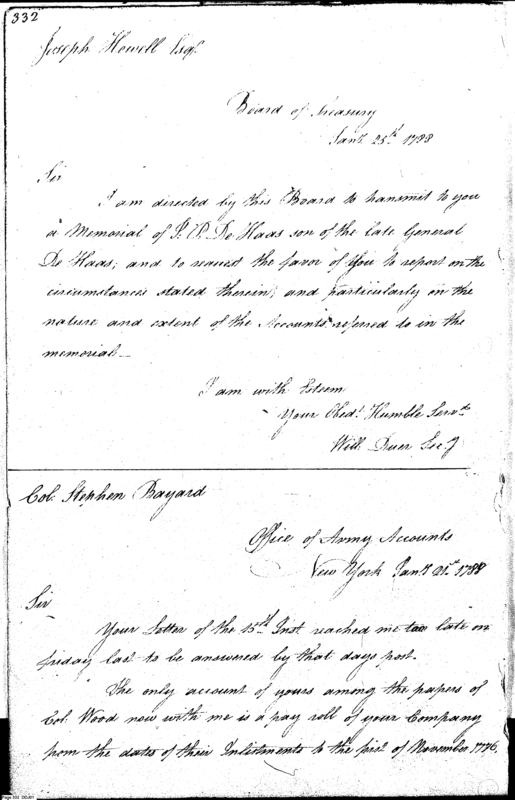 332
Joseph Howell Esqr.
Board of Treasury
Jany. 25th. 1788
Sir
I am directed by this Board to transmit to you
a Memorial of J. P. De Haas son of the late General
De Haas; and to request the favor of You to report on the
circumstances stated therein; and particularly on the
nature and extent of the Accounts referred to in the
memorial—
I am with Esteem
Your Obedt. Humble Servt.
Will. Duer Secy
Col. Stephen Bayard
Office of Army Accounts
New York Jany. 21st. 1788
Sir
Your Letter of the 15th. Inst. reached me too late on
friday last to be answered by that days post.
The only account of yours among the papers of
Col. Wood now with me is a pay roll of your Company
from the dates of their Inlistments to the first of November 1776.